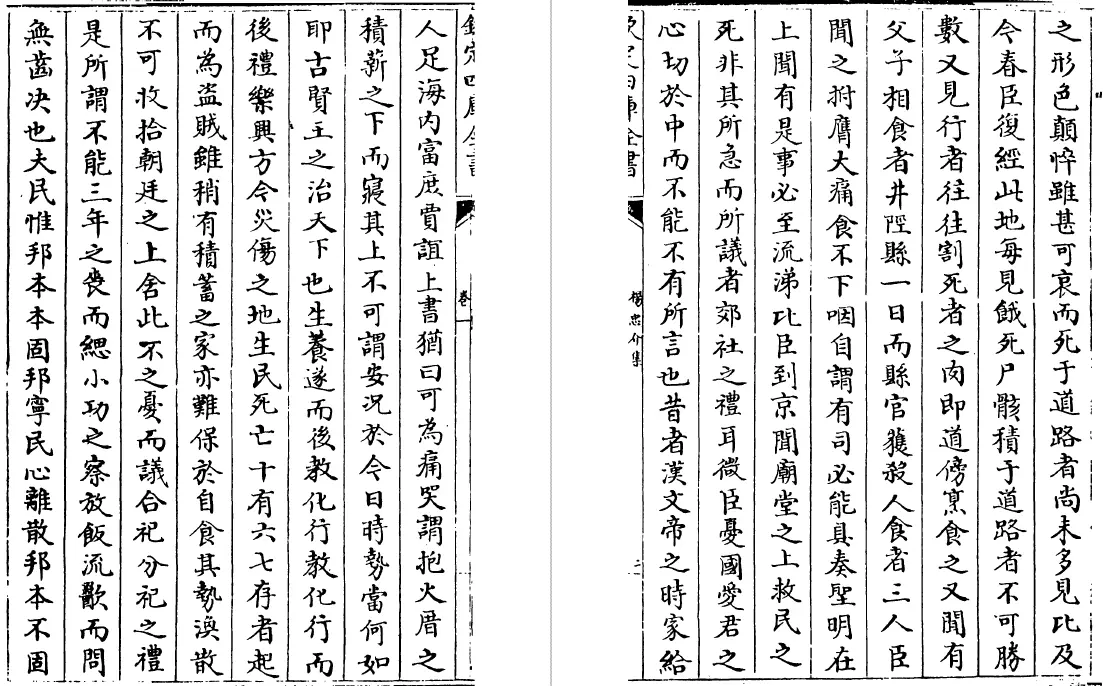 之形色顛悴雖甚可哀而死于道路者尚未多見比及
今春臣復經此地每見餓死尸骸積于道路者不可勝
數又見行者往往割死者之肉即道傍烹食之又聞有
父子相食者井陘縣一日而縣官獲殺人食者三人臣
聞之拊膺大痛食不下咽自謂有司必能具奏聖明在
上聞有是事必至流涕比臣到京聞廟堂之上救民之
死非其所急而所議者郊社之禮耳微臣憂國愛君之
心切於中而不能不有所言也昔者漢文帝之時家給
欽定四庫全書
楊忠介集
卷一
二
人足海内富庶賈誼上書猶曰可為痛哭謂抱火厝之
積薪之下而寢其上不可謂安况於今日時勢當何如
耶古賢主之治天下也生養遂而後教化行教化行而
後禮樂興方今災傷之地生民死亡十有六七存者起
而為盜賊雖稍有積蓄之家亦難保於自食其勢渙散
不可收拾朝廷之上舍此不之憂而議合祀分祀之禮
是所謂不能三年之喪而緦小功之察放飯流歠而問
無齒决也夫民惟邦本本固邦寧民心離散邦本不固